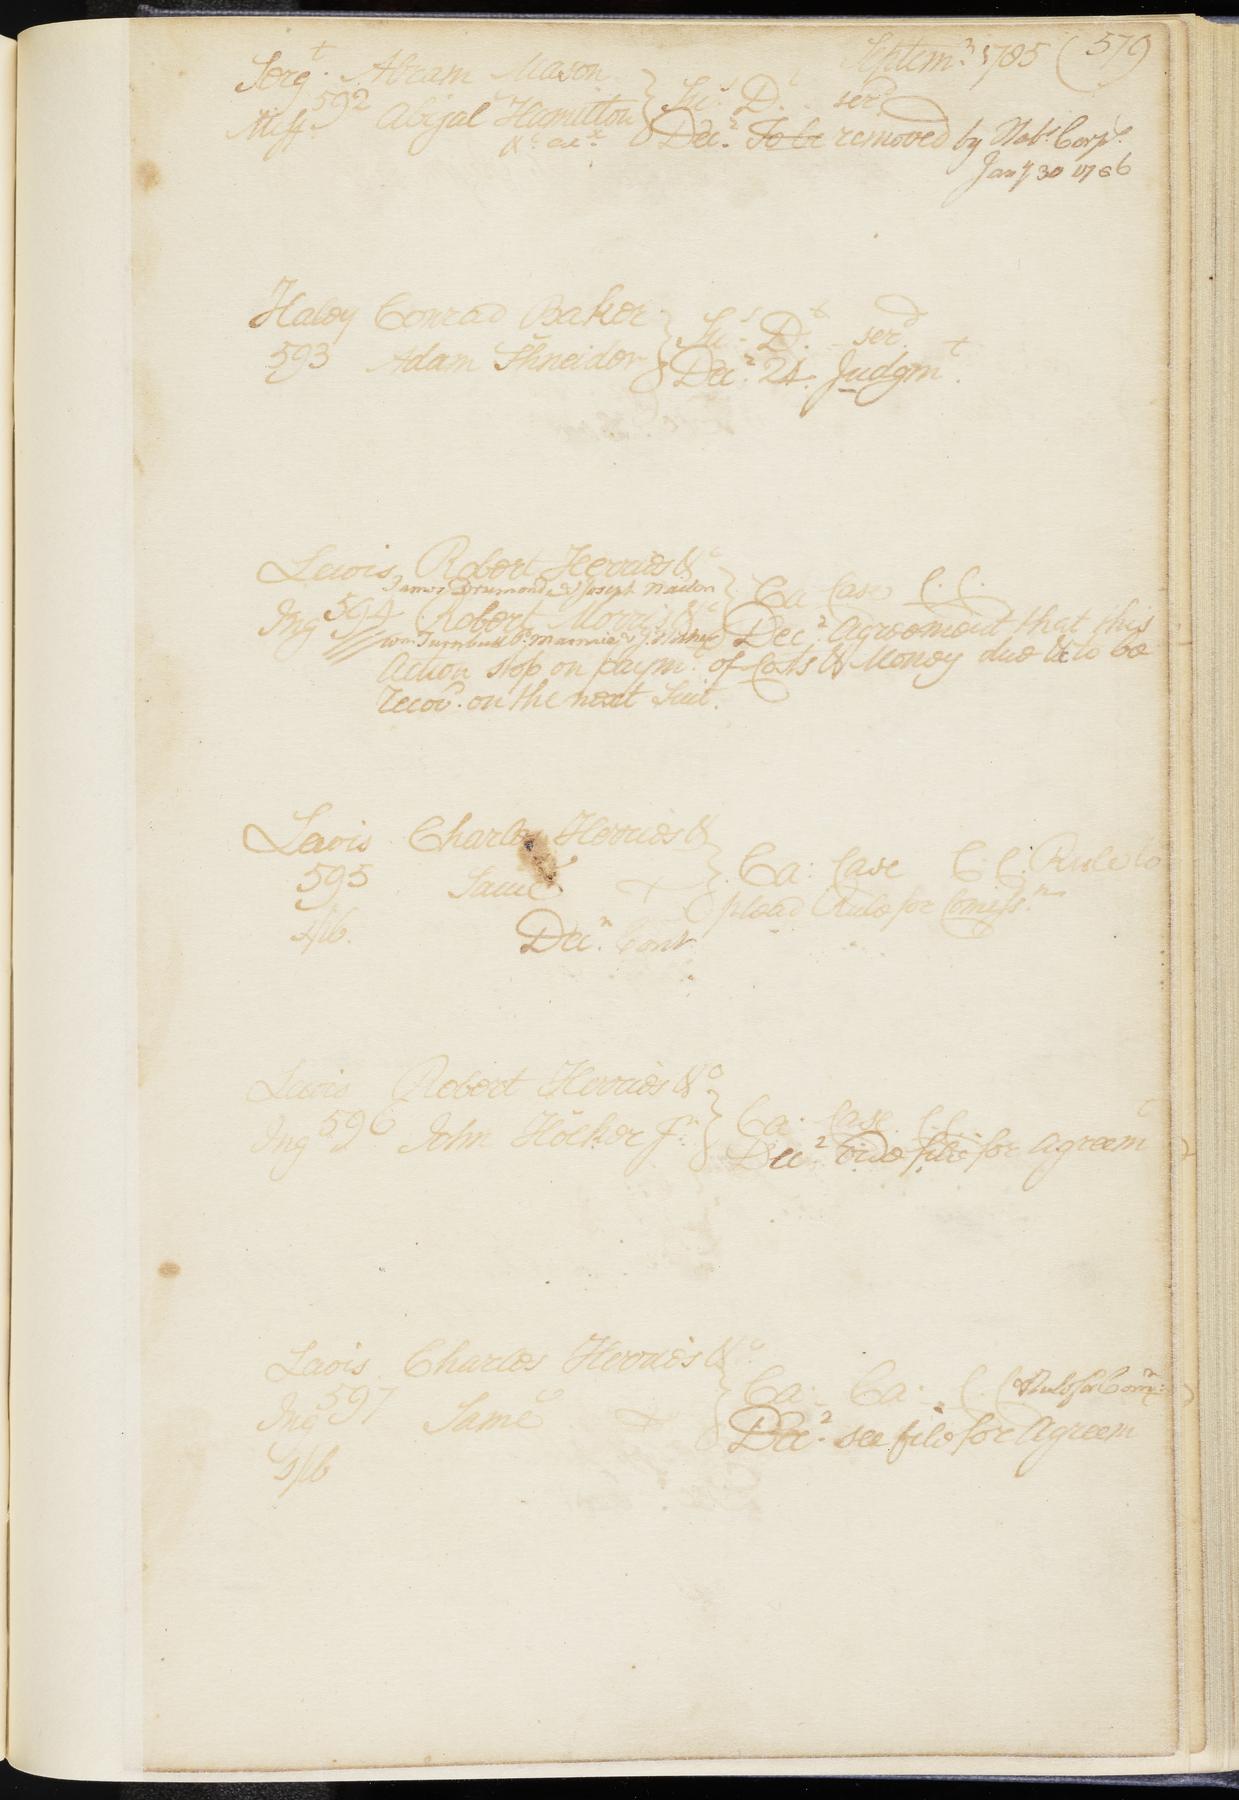 Septemr 1785 (579
Sergt. Abram Mason
Miff. 592 Abijal Hamilton Su:s D.t serd
Decr. To be removed by Habs Corps.
Jany 30 1786
Haley Conrad Baker Su:s D.t serd
593 Adam Shneider Decr. 24. Judgmt.
Lewis Robert Herries &c
James Drumond & Joseph Ca Case C. C.
Ing 594 Robert Morris &c Decr. Agreement that this
Wm. Turnbull P. Marmie & J. Holker
Action stop on paymt. of Costs & Money due & to be
recovd. on the next Suit.
Lewis Charles Herries &
595 Same Ca: Case C. C. Rule to
plead Rule for Comissn
Decr. Cont
Lewis Robert Herries &c
Ing 596 John Holker Jr. Ca. Case C. C.
Decr. vide file for agreemt
Lewis Charles Herries &c
Ing 597 Same Ca. Ca. C. C. Rule for Comn:
Decr. see file for Agreem